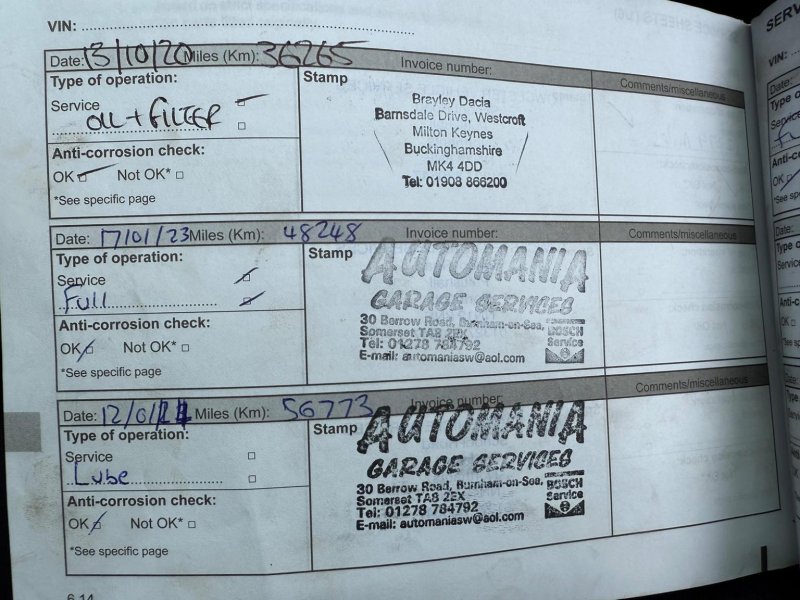 VIN:
Date: 13/10/20 Miles (Km): 36265 Invoice number: Comments/miscellaneous
Type of operation:
Stamp
Service
OIL + FILTER
Anti-corrosion check:
OK Not OK
*See specific page
Brayley Dacia
Barnsdale Drive, Westcroft
Milton Keynes
Buckinghamshire
MK4 4DD
Tel: 01908 866200
Date: 17/01/23 Miles (Km): 48248 Invoice number: Comments/miscellaneous
Type of operation:
Stamp
Service
Full
Anti-corrosion check:
OK Not OK*
*See specific page
AUTOMANIA
GARAGE SERVICES
30 Berrow Road, Burnham-on-Sea,
Somerset TA8 2EX
Tel: 01278 784792
E-mail: automaniasw@aol.com
BOSCH
Service
Date: Miles (Km): 56773 Invoice number: Comments/miscellaneous
Type of operation:
Stamp
Service
Lube
Anti-corrosion check:
OK Not OK*
*See specific page
AUTOMANIA
GARAGE SERVICES
30 Berrow Road, Burnham-on-Sea,
Somerset TA8 2EX
Tel: 01278 784792
E-mail: automaniasw@aol.com
BOSCH
Service
6.14
VIN: